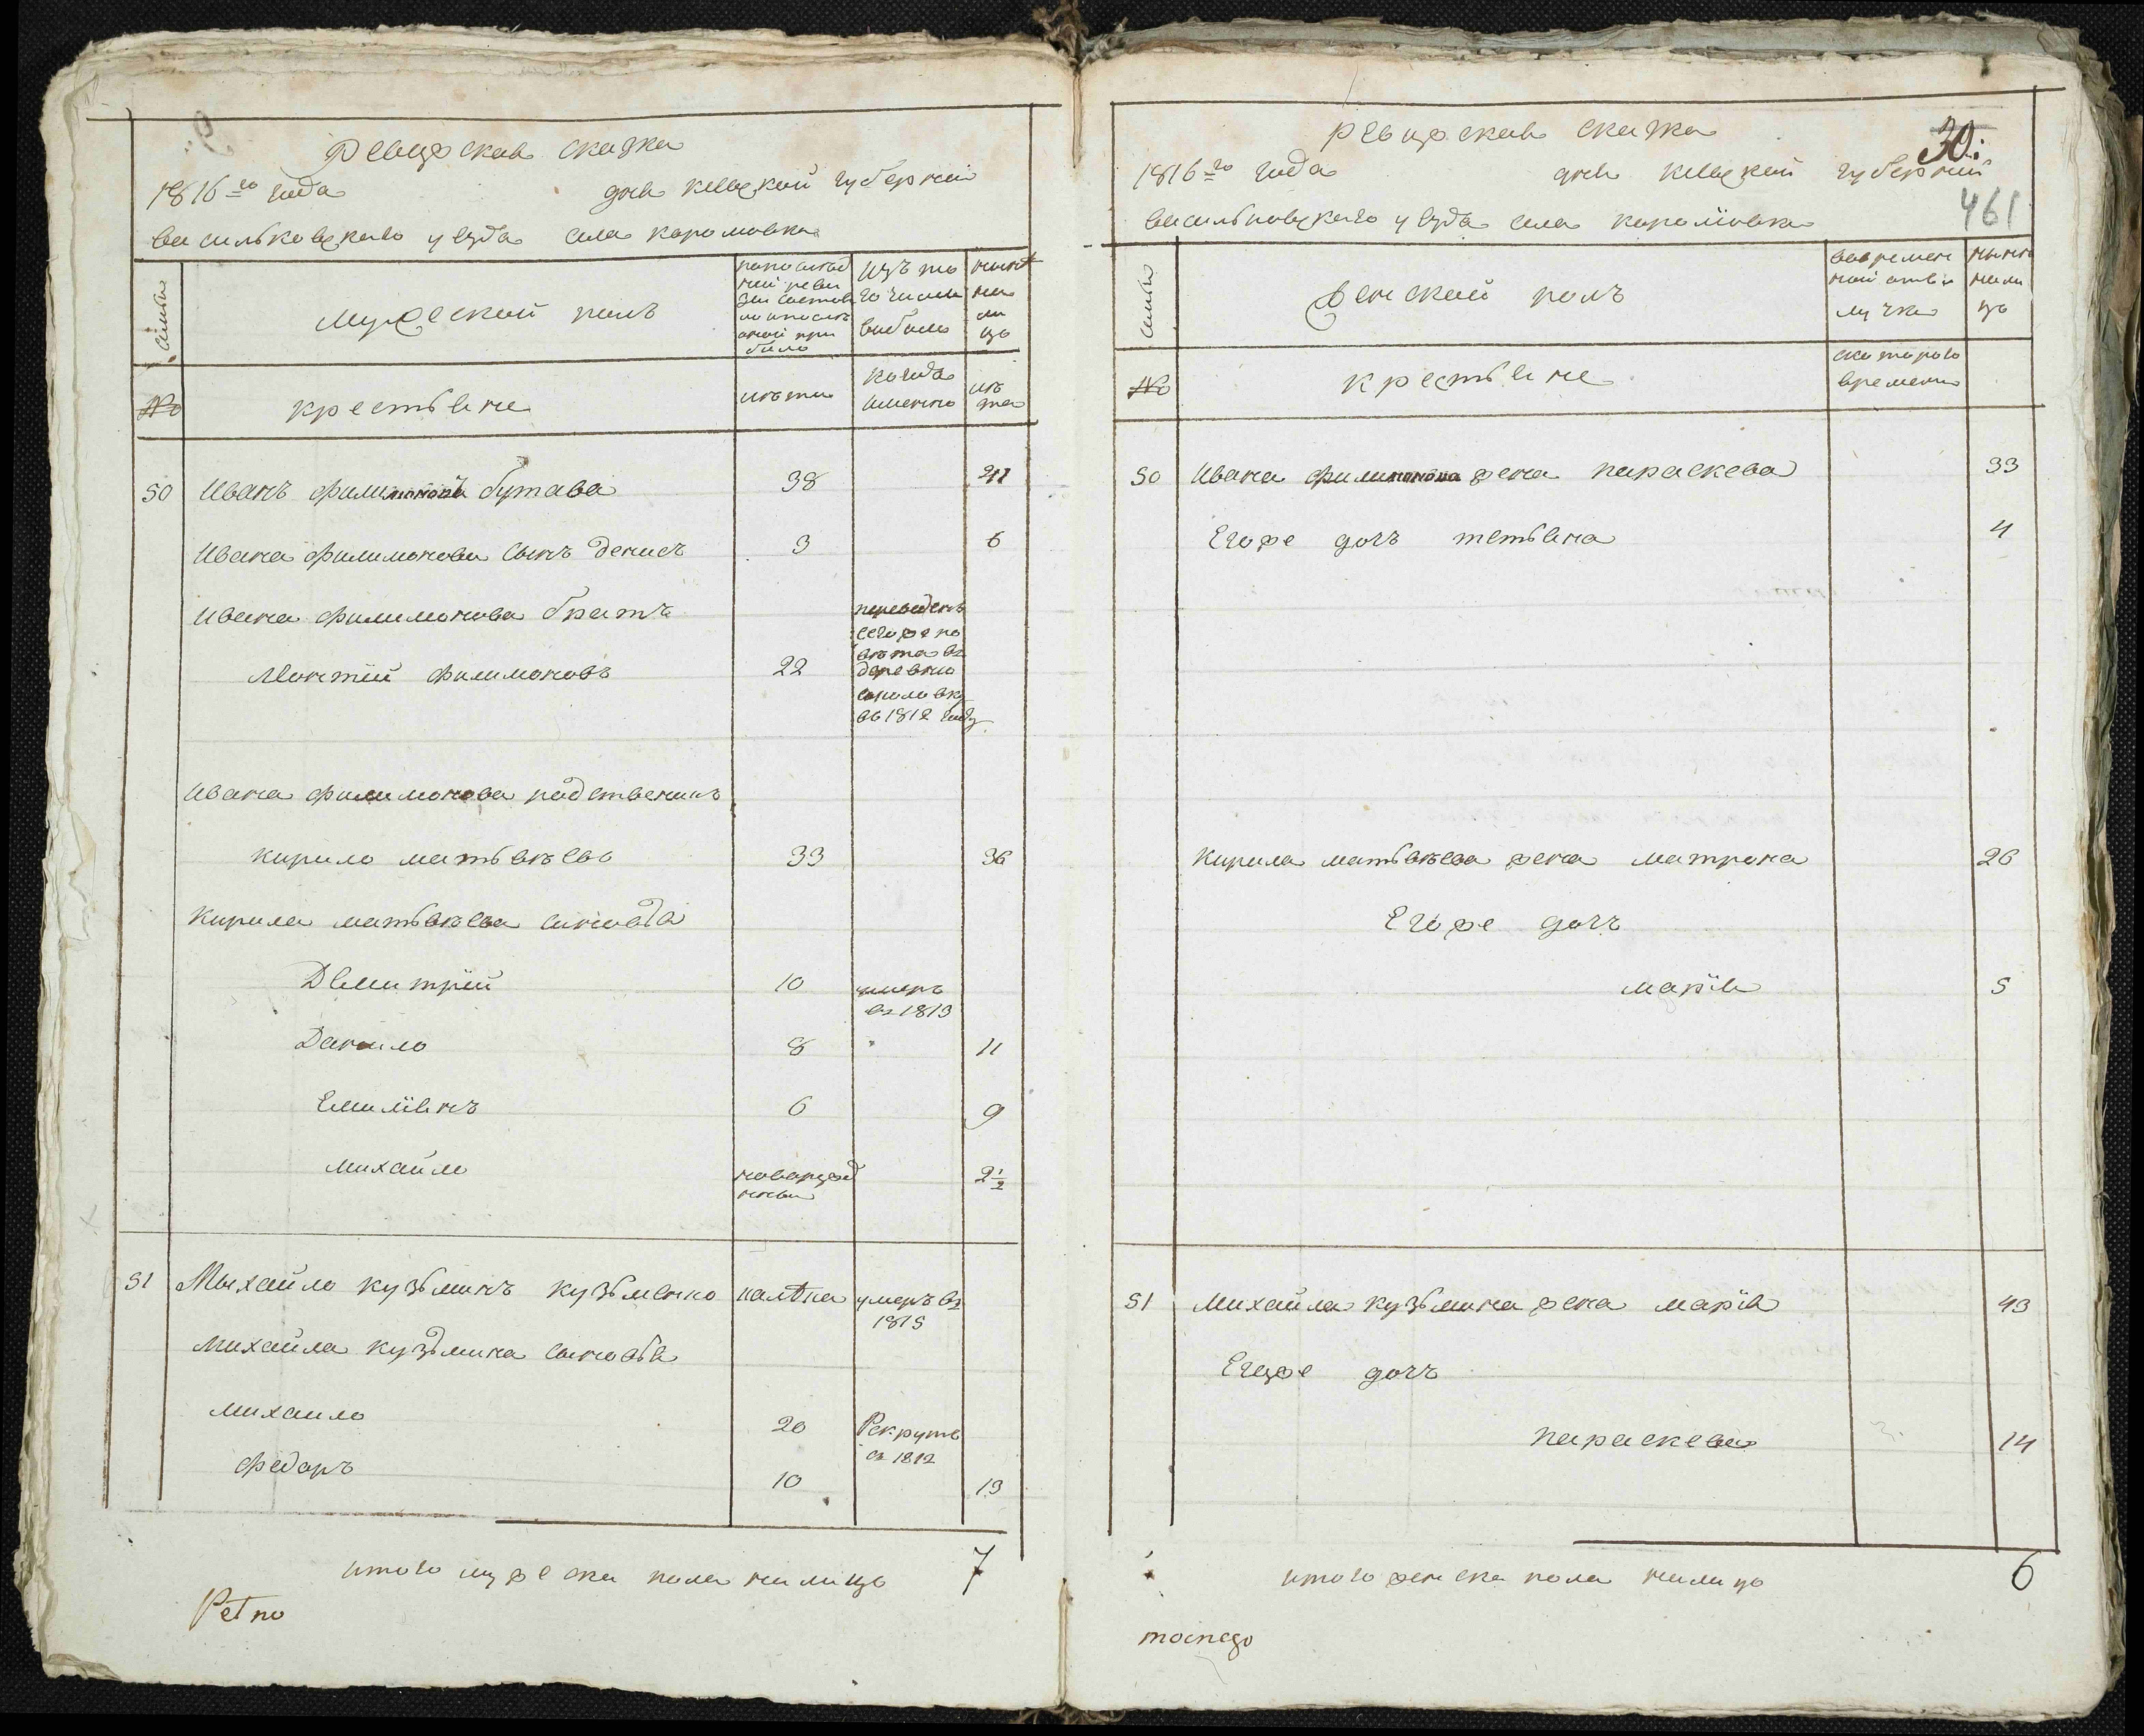 Ревизская сказка
1816 го года дня киевской губернии
васильковскаго уезда села королювка
Семьи
Мужеской полъ
попослед
ней реви
зіи состоя
ло ипосле
оной при
было
изъ то
го числа
выбыло
ныне
на
ли
цо
№
крестьяне
лета
когда
именно
ле
та
50 Иванъ филимоновъ бутава 38 41
Ивана филимонова сынъ денисъ 3 6
Ивана филимонова братъ
Монтій филимоновъ 22
переведенъ
сегоже по
вета въ
деревню
въ 1812 году
Ивана филимонова родственикъ
кирило матьвеевъ 33 36
Кирила матьвеева синовья
Дмитрій 10 умеръ
въ 1813
Данило 8 11
Емиліянъ 6 9
михайло новорожд
1/2 2
51 Михайло кузьминъ кузьменко калека умеръ въ
1815
Михайла кузьмина сыновья
михаило 20 Рекрутъ
въ 1812
федоръ 10 13
итого мужеска пола налицо 7
Petno
Ревизская сказка
30.
1816 го года дня киевской губерний
461
васильковскаго уезда села короліовка
Семьи
Женской полъ
вовремен
ной отъ
лучке
ныне
нали
цо
№
крестьяне
скоторого
времени
50 Ивана филимонова жена параскева 33
Егоже дочъ тетьяна 4
Кирила матьвеева жена матрона 26
Егоже дочъ
марія 5
51 Михайла кузьмина жена марія 43
Егоже дочъ
параскева 14
итого женска пола налицо 6
mocnego